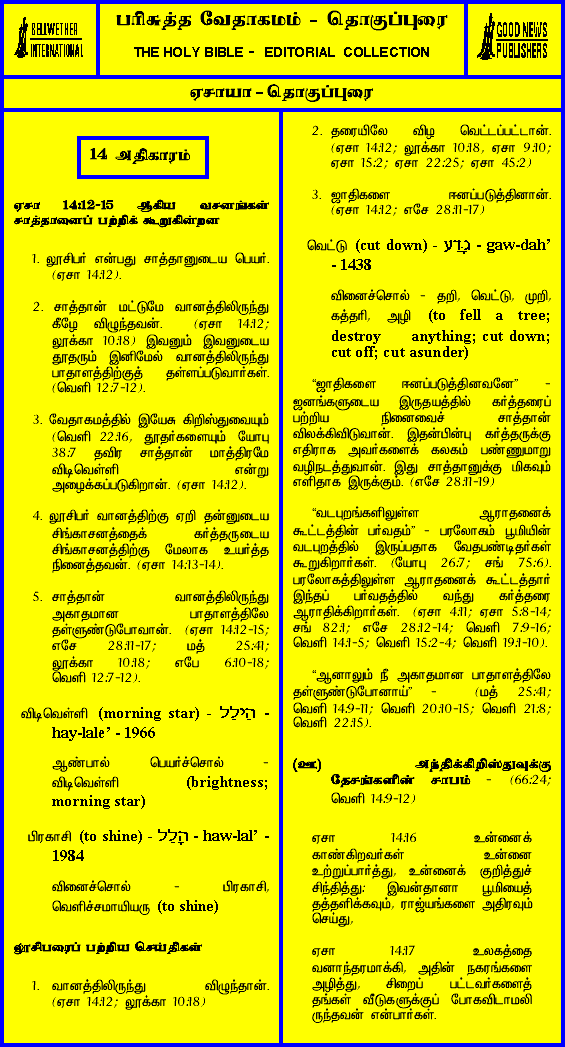 BELLWETHER
INTERNATIONAL
பரிசுத்த வேதாகமம் - தொகுப்புரை
THE HOLY BIBLE - EDITORIAL COLLECTION
GOOD NEWS
PUBLISHERS
ஏசாயா - தொகுப்புரை
14 அதிகாரம்
ஏசா 14:12-15 ஆகிய வசனங்கள்
சாத்தானைப் பற்றிக் கூறுகின்றன
1. லூசிபர் என்பது சாத்தானுடைய பெயர்.
(ஏசா 14:12).
2. சாத்தான் மட்டுமே வானத்திலிருந்து
கீழே விழுந்தவன். (ஏசா 14:12;
லூக்கா 10:18) இவனும் இவனுடைய
தூதரும் இனிமேல் வானத்திலிருந்து
பாதாளத்திற்குத் தள்ளப்படுவார்கள்.
(வெளி 12:7-12).
3. வேதாகமத்தில் இயேசு கிறிஸ்துவையும்
(வெளி 22:16, தூதர்களையும் யோபு
38:7 தவிர சாத்தான் மாத்திரமே
விடிவெள்ளி என்று
அழைக்கப்படுகிறான். (ஏசா 14:12).
4. லூசிபர் வானத்திற்கு ஏறி தன்னுடைய
சிங்காசனத்தைக் கர்த்தருடைய
சிங்காசனத்திற்கு மேலாக உயர்த்த
நினைத்தவன். (ஏசா 14:13-14).
5. சாத்தான் வானத்திலிருந்து
அகாதமான பாதாளத்திலே
தள்ளுண்டுபோவான். (ஏசா 14:12-15;
எசே 28:11-17; மத் 25:41;
லூக்கா 10:18; எபே 6:10-18;
வெளி 12:7-12).
விடிவெள்ளி (morning star) - הֵילֵל -
hay-lale’ - 1966
ஆண்பால் பெயர்ச்சொல் -
விடிவெள்ளி (brightness;
morning star)
பிரகாசி (to shine) - הָלַל - haw-lal’ -
1984
வினைச்சொல் - பிரகாசி,
வெளிச்சமாயியரு (to shine)
லூசிபரைப் பற்றிய செய்திகள்
1. வானத்திலிருந்து விழுந்தான்.
(ஏசா 14:12; லூக்கா 10:18)
2. தரையிலே விழ வெட்டப்பட்டான்.
(ஏசா 14:12; லூக்கா 10:18, ஏசா 9:10;
ஏசா 15:2; ஏசா 22:25; ஏசா 45:2)
3. ஜாதிகளை ஈனப்படுத்தினான்.
(ஏசா 14:12; எசே 28:11-17)
வெட்டு (cut down) - גָּדַע - gaw-dah’
- 1438
வினைச்சொல் - தறி, வெட்டு, முறி,
கத்தரி, அழி (to fell a tree;
destroy anything; cut down;
cut off; cut asunder)
“ஜாதிகளை ஈனப்படுத்தினவனே” -
ஜனங்களுடைய இருதயத்தில் கர்த்தரைப்
பற்றிய நினைவைச் சாத்தான்
விலக்கிவிடுவான். இதன்பின்பு கர்த்தருக்கு
எதிராக அவர்களைக் கலகம் பண்ணுமாறு
வழிநடத்துவான். இது சாத்தானுக்கு மிகவும்
எளிதாக இருக்கும். (எசே 28:11-19)
“வடபுறங்களிலுள்ள ஆராதனைக்
கூட்டத்தின் பர்வதம்” - பரலோகம் பூமியின்
வடபுறத்தில் இருப்பதாக வேதபண்டிதர்கள்
கூறுகிறார்கள். (யோபு 26:7; சங் 75:6).
பரலோகத்திலுள்ள ஆராதனைக் கூட்டத்தார்
இந்தப் பர்வதத்தில் வந்து கர்த்தரை
ஆராதிக்கிறார்கள். (ஏசா 4:11; ஏசா 5:8-14;
சங் 82:1; எசே 28:12-14; வெளி 7:9-16;
வெளி 14:1-5; வெளி 15:2-4; வெளி 19:1-10).
“ஆனாலும் நீ அகாதமான பாதாளத்திலே
தள்ளுண்டுபோனாய்” - (மத் 25:41;
வெளி 14:9-11; வெளி 20:10-15; வெளி 21:8;
வெளி 22:15).
(ஊ) அந்திக்கிறிஸ்துவுக்கு
தேசங்களின் சாபம் - (66:24;
வெளி 14:9-12)
ஏசா 14:16 உன்னைக்
காண்கிறவர்கள் உன்னை
உற்றுப்பார்த்து, உன்னைக் குறித்துச்
சிந்தித்து; இவன்தானா பூமியைத்
தத்தளிக்கவும், ராஜ்யங்களை அதிரவும்
செய்து,
ஏசா 14:17 உலகத்தை
வனாந்தரமாக்கி, அதின் நகரங்களை
அழித்து, சிறைப் பட்டவர்களைத்
தங்கள் வீடுகளுக்குப் போகவிடாமலி
ருந்தவன் என்பார்கள்.